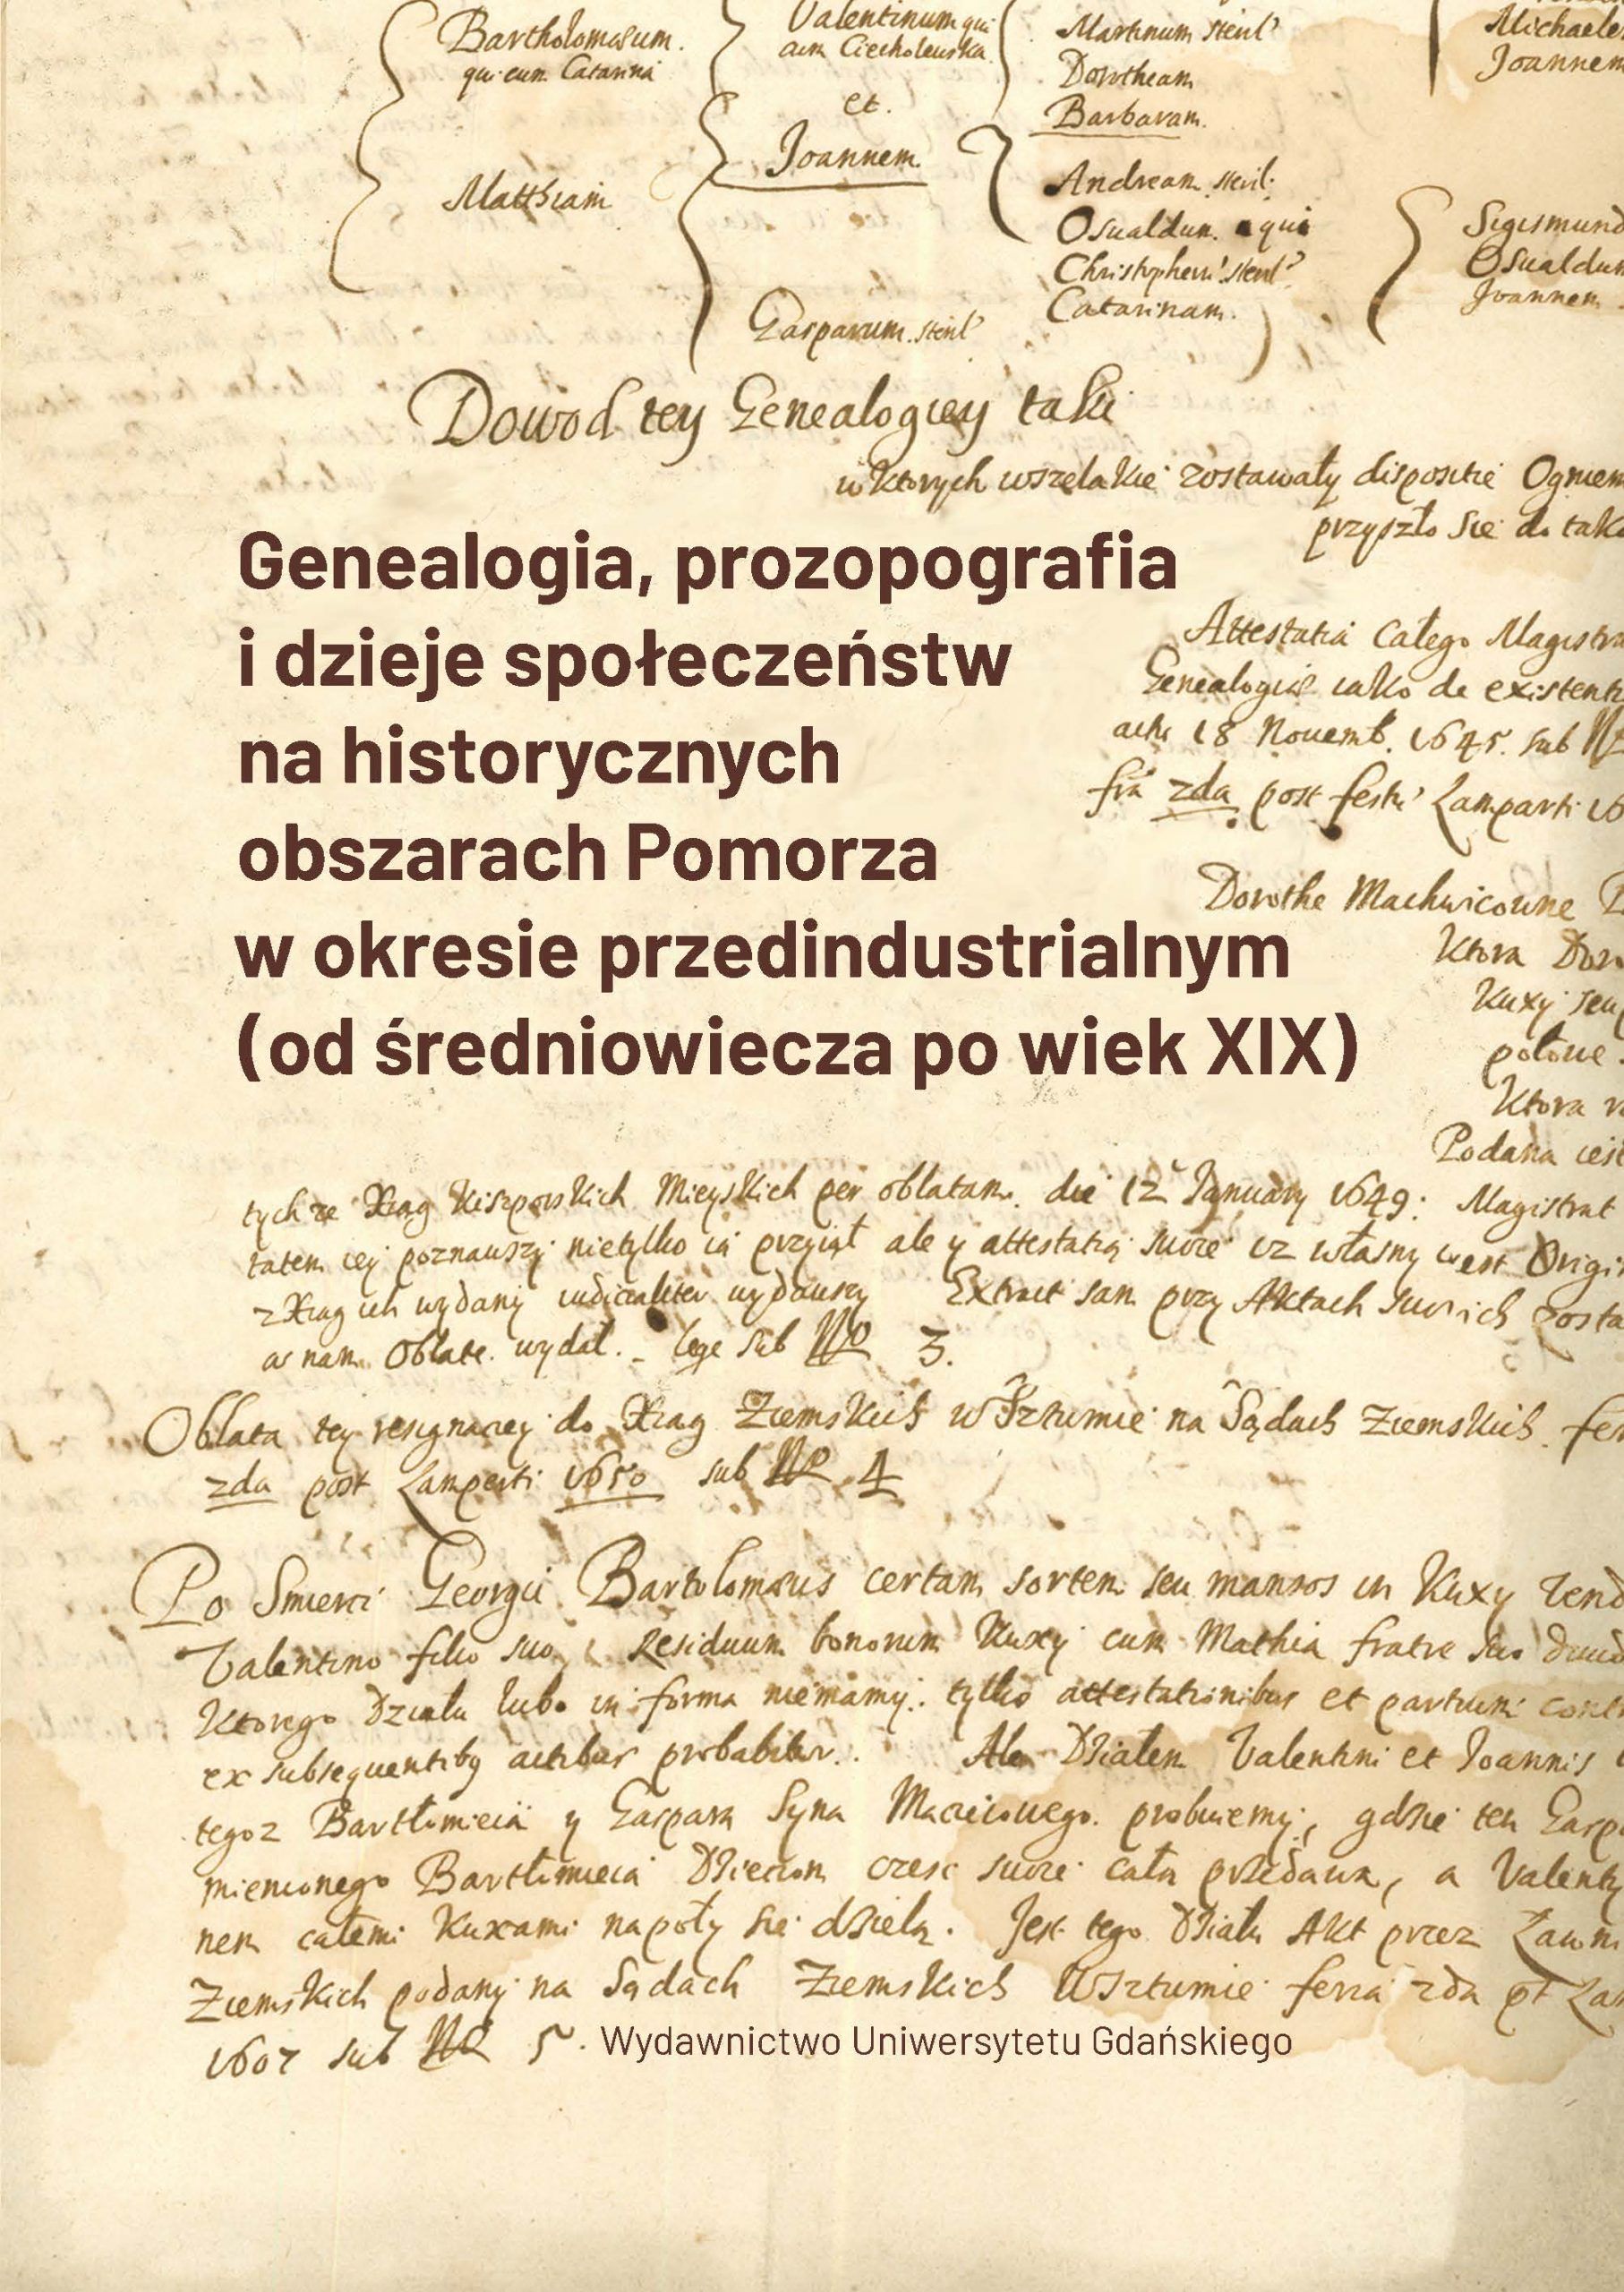 Bartholomæum. Valentinum qui Martinum steril' Michaele
qui cum Catarina cum Ciecholewska Dorotheam Joannem
et. Barbaram.
Joannem.
Matthiam Andream steril:
Osualdum. qui Sigismund
Christopheru' steril' Osualdum
Casparum steril' Catarinam. Joannem
Dowod tey Genealogiey taki
w ktorych wszelakie zostawały dispositie Ogniem
przyszło sie do
Genealogia, prozopografia
i dzieje społeczeństw
na historycznych
obszarach Pomorza
w okresie przedindustrialnym
(od średniowiecza po wiek XIX)
Attestatia Całego Magistra
iako de existent
18 Novemb. 1645. sub
zda post festu' Lamparti
Dorothe Machwicowne
Ktora
Kuxy seu
połowe
Ktora
Podana iest
tych ze Xiag Kiszporskich Mieyskich per oblatam. die 12 January 1649: Magistrat
tatem iey poznawszy nietylko ia przyiął ale y attestatią swoie własny iest Origi
z Xiag ich wydany iudicialiter wydawszy Extract sam przy Aktach swoich zosta
nam Oblate. wydał. lege sub No 3.
Oblata tey resignacey do Xiag Ziemskich w Sztumie na Sądach Ziemskich.
zda post Lamperti 1650 sub No 4
Po Smierci Georgii Bartolomæus certam sortem seu mansos in Kuxy
Valentino filio suo, Residuum bonorum Kuxy cum Mathia fratre suo
Ktorego Działu lubo in forma niemamy: tylko attestationibus et partium
ex subsequentiby actibus probabitur. Ale Działem Valentini et Joannis
tegoz Bartłomieia y Caspara Syna Macieiowego. probuiemy, gdzie ten
mienionego Bartłomieia Dzieciom czesc swoie cała przedawa, a Valenty
nem całemi Kuxami napoły sie dzielą. Jest tego Działu Akt przez
Ziemskich podany na Sądach Ziemskich w Sztumie feria zda pt
1607 sub No 5. Wydawnictwo Uniwersytetu Gdańskiego